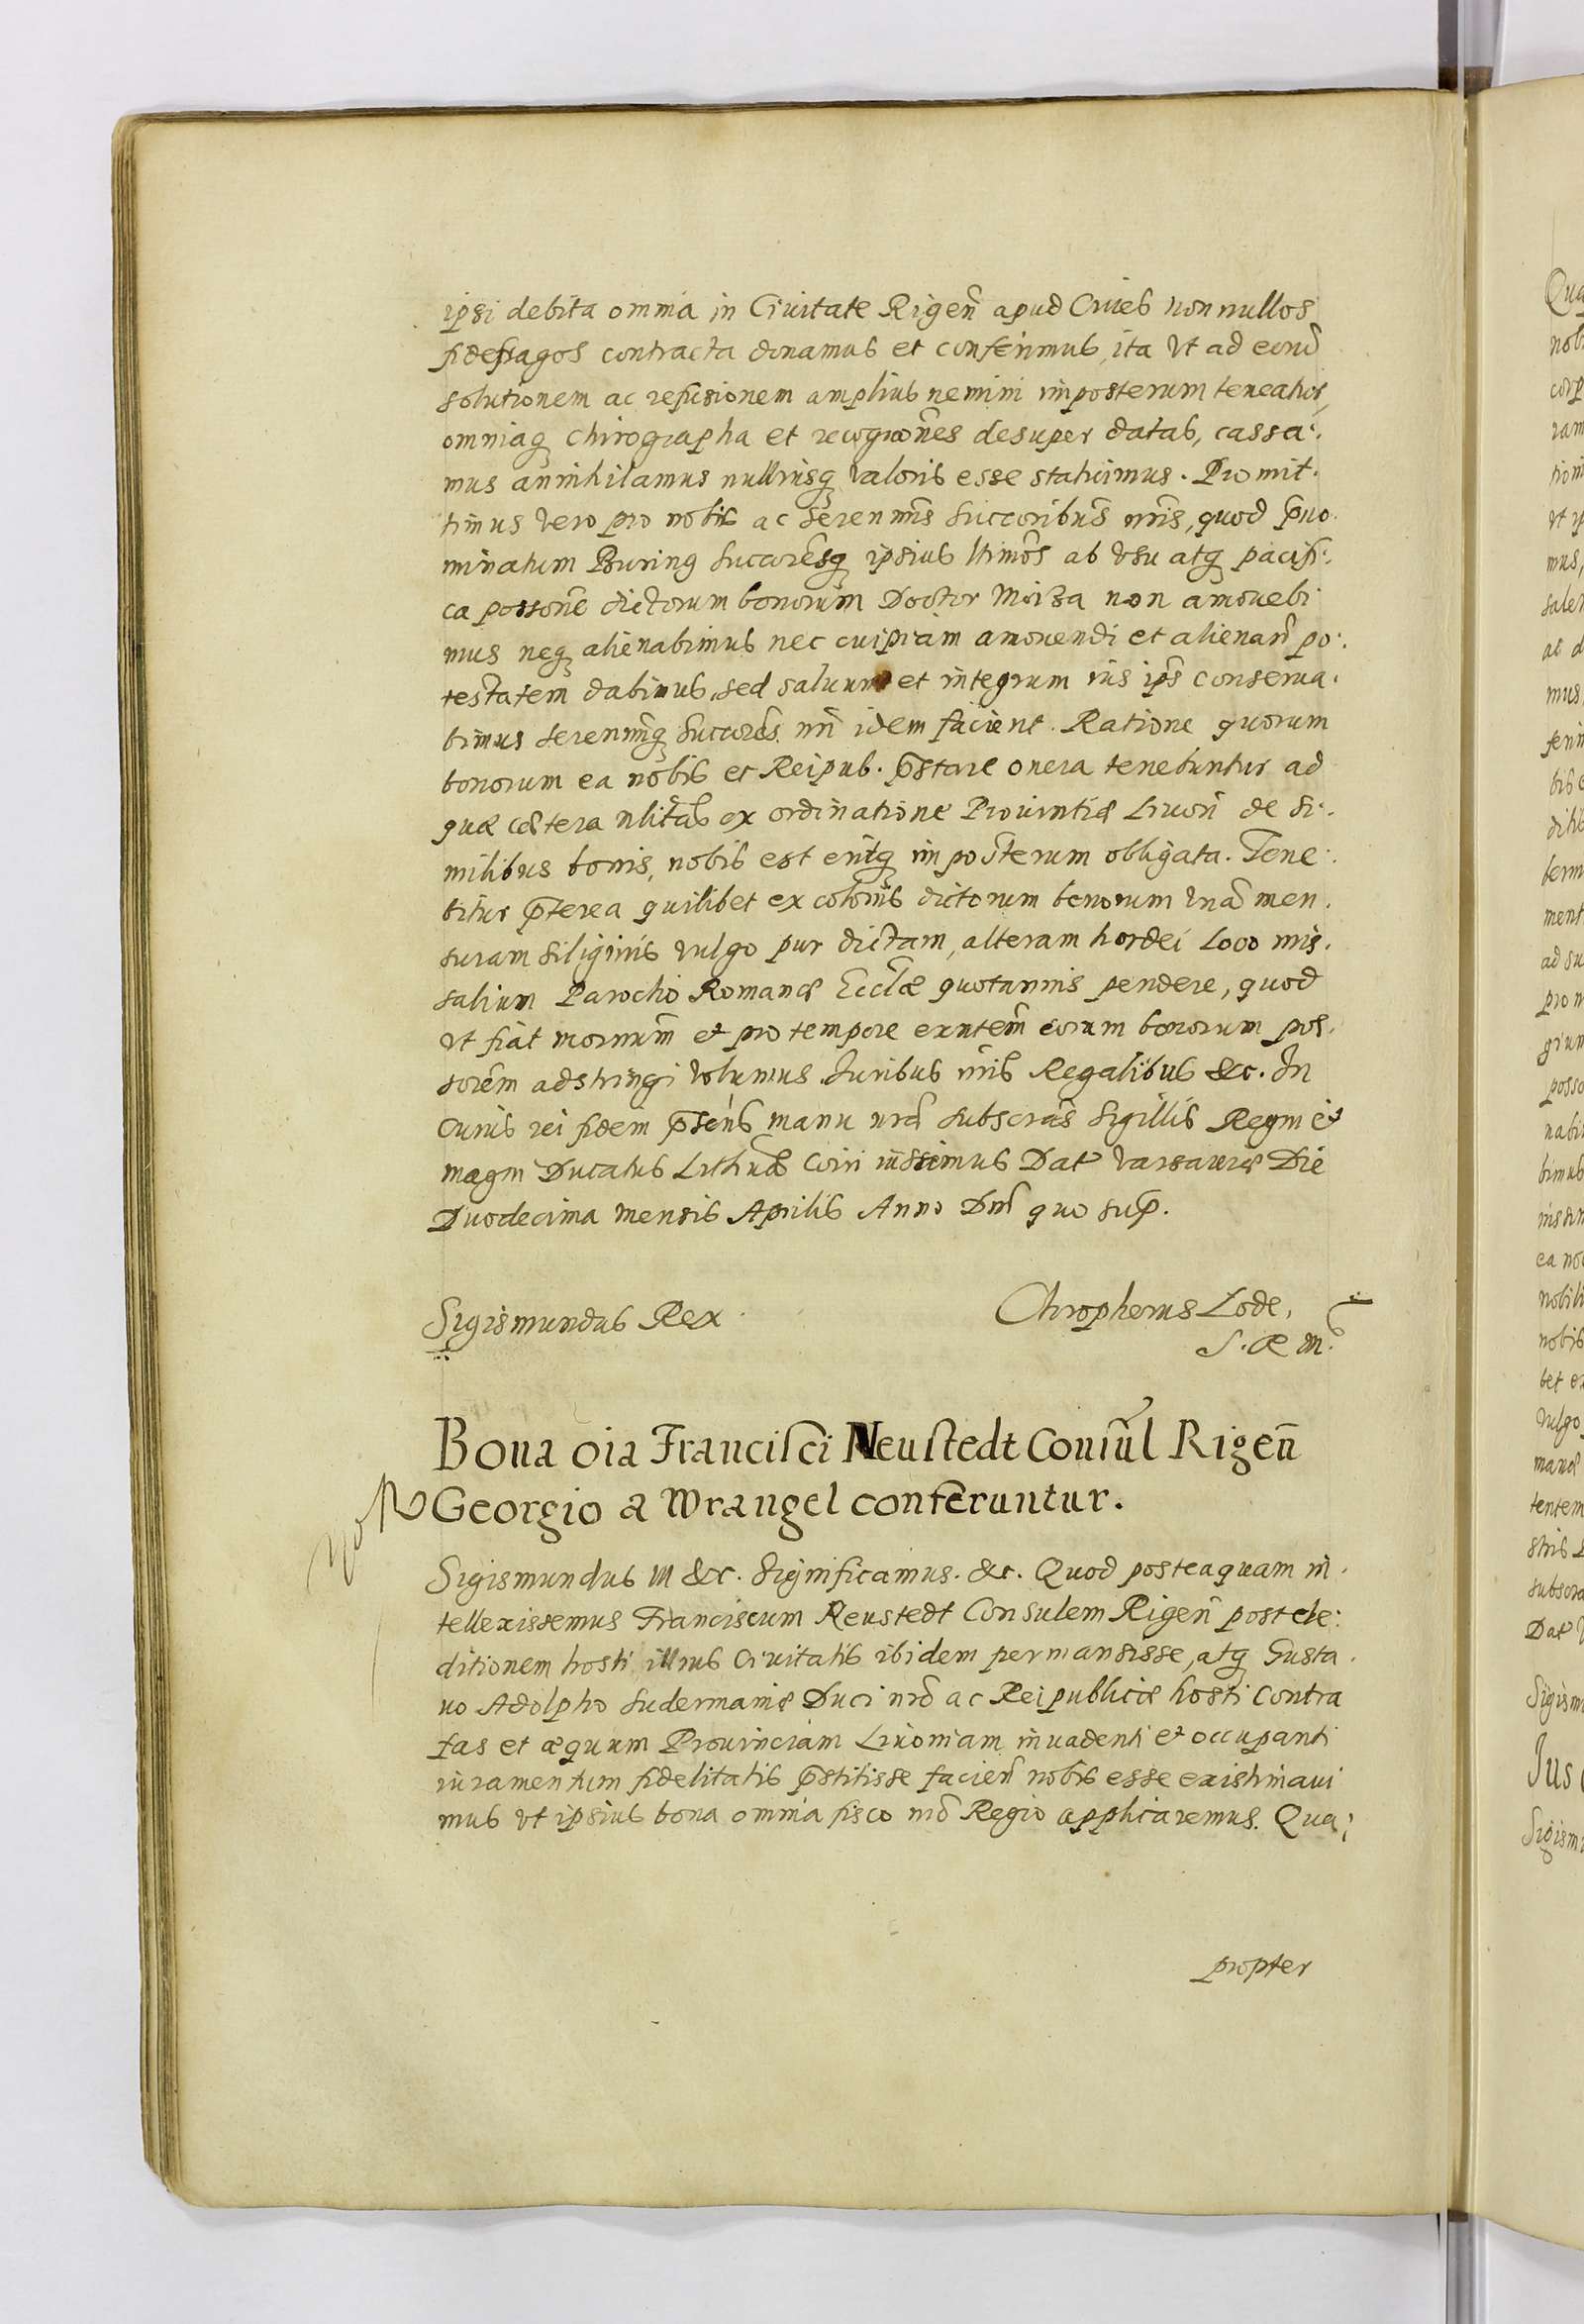 ipsi debita omnia in Ciuitate Rigeñ apud Ciues non nullos
fidefragos contracta donamus et conferimus, ita vt ad eorũ
solutionem ac refusionem amplius nemini imposterum teneatur,
omniaq chirographa et recogñones desuper datas, cassa:
mus annihilamus nulliusq valoris esse statuimus. Promit:
timus vero pro nobis ac Serenm̃is Succoribus nr̃is, quod p̃no
minatum Buring Succoresq ipsius ltimos ab vsu atq pacifi:
ca possone dictorum bonorum Doctor Moiza non amouebi
mus neq alienabimus nec cuipiam amouendi et alienañ po:
testatem dabimus, sed saluum et integrum ius ips̃ conserua:
bimus serenm̃iq Succores nr̃i idem facient. Ratione quorum
bonorum ea nobis et Reipub. p̃stare onera tenebuntur ad
quæ cætera nlitas ex ordinatione Prouintiæ Liuoñ de si:
milibus bonis, nobis est eritq in posterum obligata. Tene:
bitur p̃terea quilibet ex colonis dictorum bonorum vnã men:
suram siliginis vulgo pur dictam, alteram hordei Loco mis:
salium Parocho Romanæ Ecclæ quotannis pendere, quod
vt fiat modernum et pro tempore exñtem eorum bonorum pos:
sorem adstringi volumus. Iuribus nr̃is Regalibus &c. In
Cuius rei fidem p̃sens manu nrã subscras Sigillis Regni et
magni Ducatus Lithuæ coiri iussimus Dat Varsauiæ Die
Duodecima mensis Aprilis Anno Dnĩ quo sup̃.
Sigismundus Rex.
Chropherus Lode,
S. R M.
Bona oia Francisci Neustedt Consul Rigeñ
Georgio a Wrangel conferuntur.
Sigismundus III &c. Significamus. &c. Quod posteaquam in:
tellexissemus Franciscum Neustedt Consulem Rigeñ post de:
ditionem hosti illius Ciuitatis ibidem permansisse, atq Gusta:
uo Adolpho Sudermaniæ Duci nrõ ac Reipublicæ hosti contra
fas et æquum Prouinciam Liuoniam inuadenti et occupanti
iuramentum fidelitatis p̃stitisse facien̄ nobis esse existimaui
mus vt ipsius bona omnia fisco nrõ Regio applicaremus. Qua:
propter